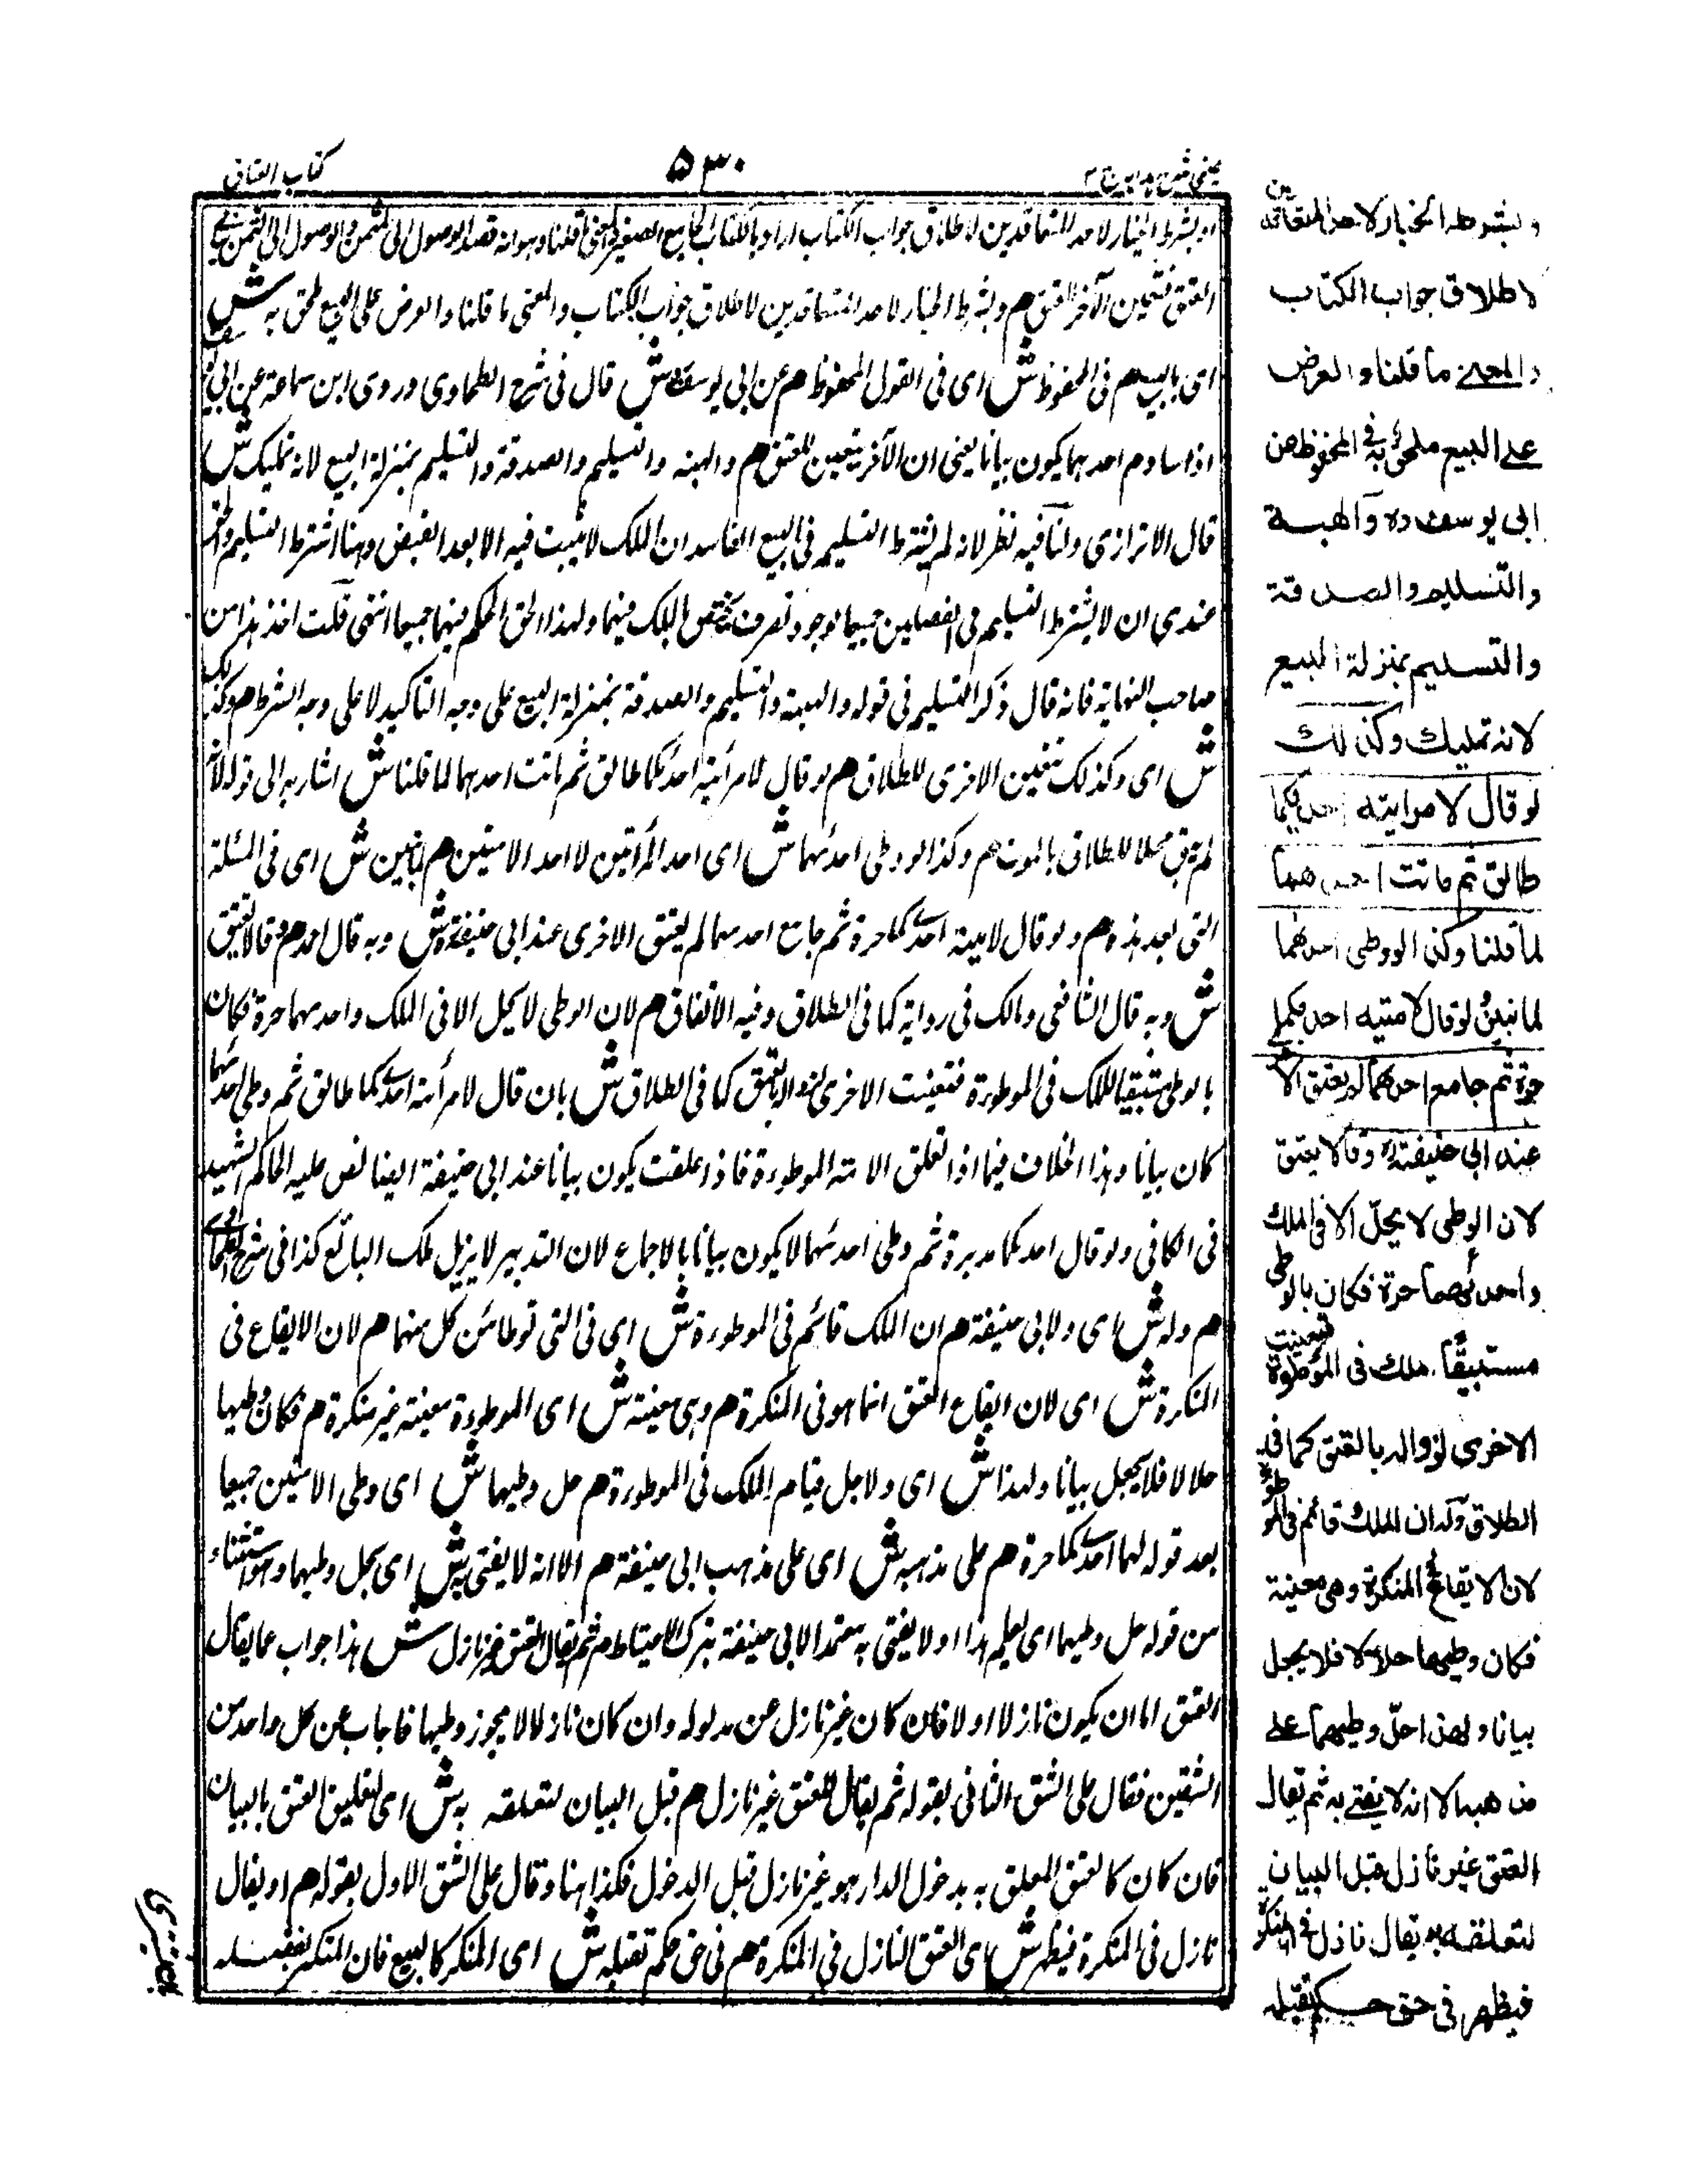 عینی شرح ہدایہ ج ۲
۵۳۰
کتاب العتاق
او بشرط الخیار لاحد المتعاقدین لاطلاق جواب الکتاب اراد بالکتاب الجامع الصغیر والمعنی ما قلنا وہو انہ قصد الوصول الی الثمن والوصول الی الثمن
العتق فتعین الآخر للعتق م وبشرط الخیار لاحد المتعاقدین لاطلاق جواب الکتاب والمعنی ما قلنا والعرض علی البیع ملحق بہ ش
ای بالبیع م فی المحفوظ ش ای فی القول المحفوظ م عن ابی یوسف ش قال فی شرح الطحاوی وروی ابن سماعۃ عن ابی یوسف
اذا ساوم احدہما یکون بیانا یعنی ان الآخر یتعین للعتق م والہبۃ والتسلیم والصدقۃ والتسلیم بمنزلۃ البیع لانہ تملیک ش
قال الاترازی ولنا فیہ نظر لانہ لم یشترط التسلیم فی البیع الفاسد ان الملک لا یثبت فیہ الا بعد القبض وہنا اشترط التسلیم والحق
عندی ان لا یشترط التسلیم فی الفصلین جمیعا لوجود تصرف یختص بالملک فیہما ولہذا الحق الحکم فیہما جمیعا انتہی قلت اخذ ہذا من
صاحب النہایۃ فانہ قال ذکر التسلیم فی قولہ والہبۃ والتسلیم والصدقۃ بمنزلۃ البیع علی وجہ التاکید لا علی وجہ الشرط م وکذلک
ش ای وکذلک تتعین الاخری للطلاق م لو قال لامرأتیہ احدٰکما طالق ثم ماتت احدہما لما قلنا ش اشار بہ الی قولہ لانہ
لم یبق محلا للطلاق بالموت م وکذا لو وطی احدٰہما ش ای احد المرأتین لا احد الامتین م لما نبین ش ای فی المسئلۃ
التی بعد ہذہ م ولو قال لامتیہ احدٰکما حرۃ ثم جامع احدٰہما لم یعتق الاخری عند ابی حنیفۃ ش وبہ قال احمد م وقالا یعتق
ش وبہ قال الشافعی ومالک فی روایۃ کما فی الطلاق وفیہ الاتفاق م لان الوطی لا یحل الا فی الملک واحدٰہما حرۃ فکان
بالوطی مستبقیا الملک فی الموطوءۃ فتعینت الاخری لزوالہ بالعتق کما فی الطلاق ش بان قال لامرأتہ احدٰکما طالق ثم وطی احدٰہما
کان بیانا وہذا الخلاف فیما اذا لم تعلق الامۃ الموطوءۃ فاذا علقت یکون بیانا عند ابی حنیفۃ ایضا نص علیہ الحاکم الشہید
فی الکافی ولو قال احدٰکما مدبرۃ ثم وطی احدٰہما لا یکون بیانا بالاجماع لان التدبیر لا یزیل ملک البائع کذا فی شرح الطحاوی
م ولہ ش ای ولابی حنیفۃ م ان الملک قائم فی الموطوءۃ ش ای فی التی توطأ من کل منہما م لان الایقاع فی
المنکرۃ ش ای لان ایقاع العتق انما ہو فی المنکرۃ م وہی معینۃ ش ای الموطوءۃ معینۃ غیر منکرۃ م فکان وطیہا
حلالا فلا یجعل بیانا ولہذا ش ای ولاجل قیام الملک فی الموطوءۃ م حل وطیہا ش ای وطی الامتین جمیعا
بعد قولہ لہما احدٰکما حرۃ م علی مذہبہ ش ای علی مذہب ابی حنیفۃ م الا انہ لا یفتی بہ ش ای بحل وطیہما وہو استثناء
من قولہ حل وطیہما ای لعلم ہذا او لا یفتی بہ معتمدا لابی حنیفۃ بترک الاحتیاط م ثم یقال العتق غیر نازل ش ہذا جواب عما یقال
العتق اما ان یکون نازلا اولا فان کان غیر نازل عن مدلولہ وان کان نازلا لا یجوز وطیہا فاجاب عن کل واحد من
الشقین فقال علی الشق الثانی بقولہ ثم یقال للعتق غیر نازل م قبل البیان لتعلقہ بہ ش ای لتعلیق العتق بالبیان
فان کان کالعتق المعلق بہ بدخول الدار ہو غیر نازل قبل الدخول فکذا ہنا وقال علی الشق الاول بقولہ م او یقال
نازل فی المنکرۃ فیظہر ش ای العتق النازل فی المنکرۃ م فی حق حکم تقبلہ ش ای المنکر کالبیع فان المنکر یقبلہ
وبشرط الخیار لاحد المتعاقدین
لاطلاق جواب الکتاب
والمعنے ما قلنا والعرض
علے البیع ملحق بہ فی المحفوظ عن
ابی یوسف رہ والہبۃ
والتسلیم والصدقۃ
والتسلیم بمنزلۃ البیع
لانہ تملیک وکذلک
لو قال لامرأیتہ احدٰیکما
طالق ثم ماتت احدٰہما
لما قلنا وکذا لو وطی احدٰہما
لما نبین ولو قال لامتیہ احدٰیکما
حرۃ ثم جامع احدٰہما لم یعتق الاخری
عند ابی حنیفۃ وقالا یعتق
لان الوطی لا یحل الا فی الملک
واحدٰہما حرۃ فکان بالوطی
مستبقیا الملک فی الموطوءۃ فتعینت
الاخری لزوالہ بالعتق کما فی
الطلاق ولہ ان الملک قائم فی الموطوءۃ
لان الایقاع فی المنکرۃ وہی معینۃ
فکان وطیہا حلالا فلا یجعل
بیانا ولہذا حل وطیہما علے
مذہبہ الا انہ لا یفتے بہ ثم یقال
العتق غیر نازل قبل البیان
لتعلقہ بہ او یقال نازل فی المنکرۃ
فیظہر فی حق حکم تقبلہ